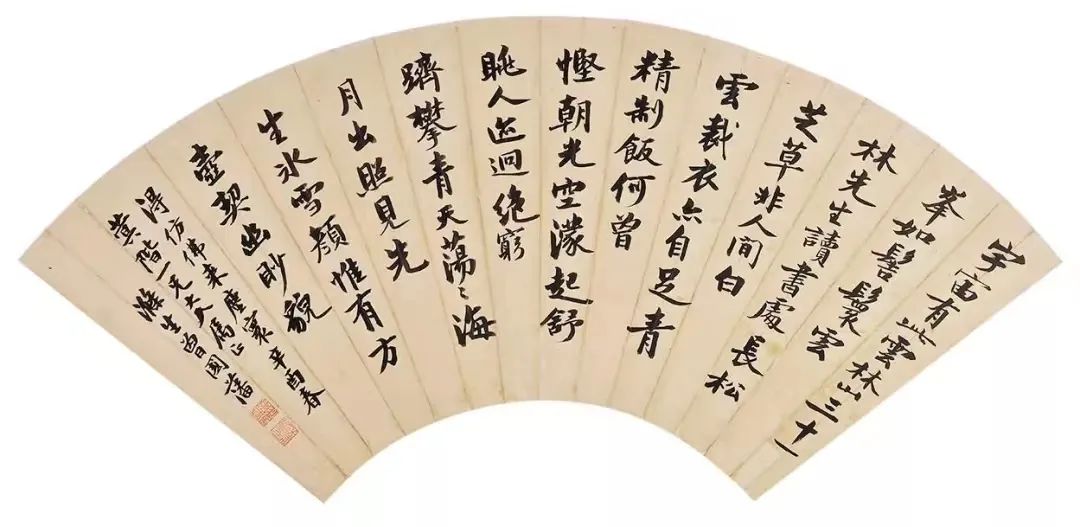 宇宙有此雲林山三十一
峯如髻鬟雲
林先生讀書處長松
芝草非人間白
雲裁衣亦自足青
精制飯何曾
慳朝光空濛起舒
眺人迹迥絶窮
躋攀青天蕩〻海
月出照見先
生冰雪顏惟有方
壺契幽眇貌
得仿佛來塵寰辛酉春
蓂階一兄大人属正
滌生曾國藩